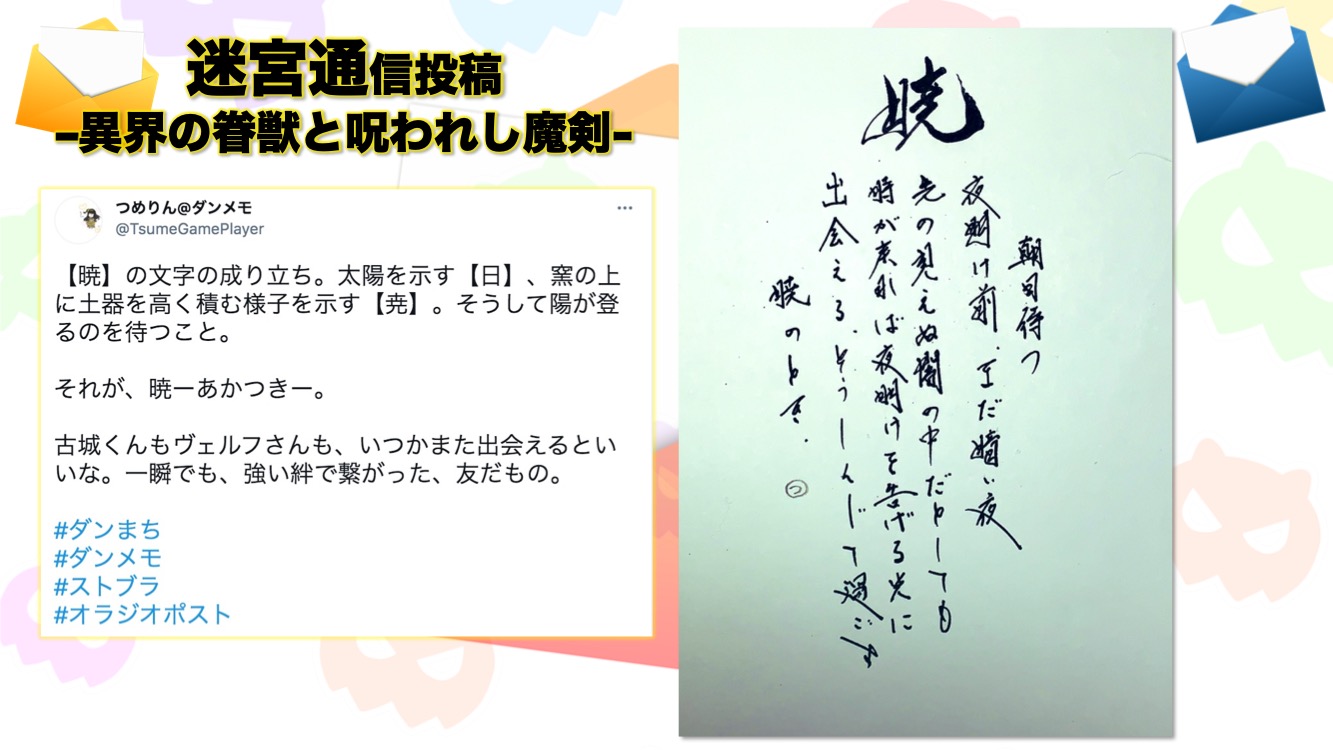 迷宮通信投稿
-異界の眷獣と呪われし魔剣-
つめりん@ダンメモ
@TsumeGamePlayer
【暁】の文字の成り立ち。太陽を示す【日】、窯の上
に土器を高く積む様子を示す【尭】。そうして陽が登
るのを待つこと。
それが、暁ーあかつきー。
古城くんもヴェルフさんも、いつかまた出会えるとい
いな。一瞬でも、強い絆で繋がった、友だもの。
#ダンまち
#ダンメモ
#ストブラ
#オラジオポスト
暁
朝日待つ
夜明け前.まだ暗い夜
先の見えぬ闇の中だとしても
時が来れば夜明けを告げる光に
出会える.そうしんじて過ごす
暁のとき.
つ